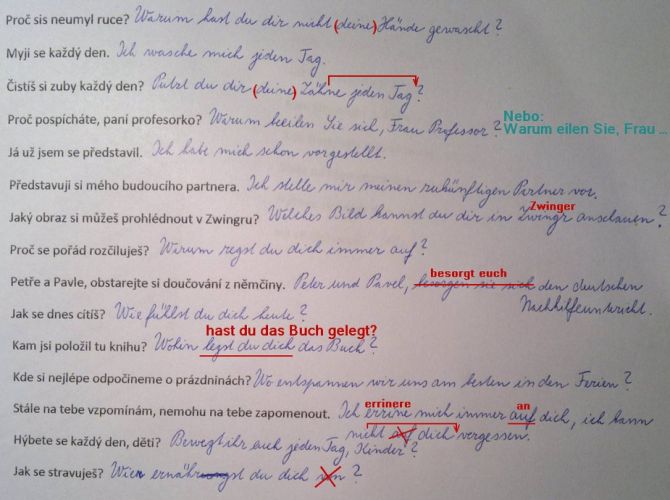 Proč sis neumyl ruce? Warum hast du dir nicht (deine) Hände gewascht?
Myji se každý den. Ich wasche mich jeden Tag.
Čistíš si zuby každý den? Putzt du dir (deine) Zähne jeden Tag?
Proč pospícháte, paní profesorko? Warum beeilen Sie sich, Frau Professor? Nebo:
Warum eilen Sie, Frau ...
Já už jsem se představil. Ich habe mich schon vorgestellt.
Představuji si mého budoucího partnera. Ich stelle mir meinen zukünftigen Partner vor.
Zwinger
Jaký obraz si můžeš prohlédnout v Zwingru? Welches Bild kannst du dir in Zwingr anschauen?
Proč se pořád rozčiluješ? Warum regst du dich immer auf?
besorgt euch
Petře a Pavle, obstarejte si doučování z němčiny. Peter und Pavel, besorgen sie sich den deutschen
Nachhilfeunterricht.
Jak se dnes cítíš? Wie fühlst du dich heute?
hast du das Buch gelegt?
Kam jsi položil tu knihu? Wohin legst du dich das Buch?
Kde si nejlépe odpočineme o prázdninách? Wo entspannen wir uns am besten in den Ferien?
errinere an
Stále na tebe vzpomínám, nemohu na tebe zapomenout. Ich errine mich immer auf dich, ich kann
nicht auf dich vergessen.
Hýbete se každý den, děti? Bewegt ihr euch jeden Tag, Kinder?
Jak se stravuješ? du dich ?